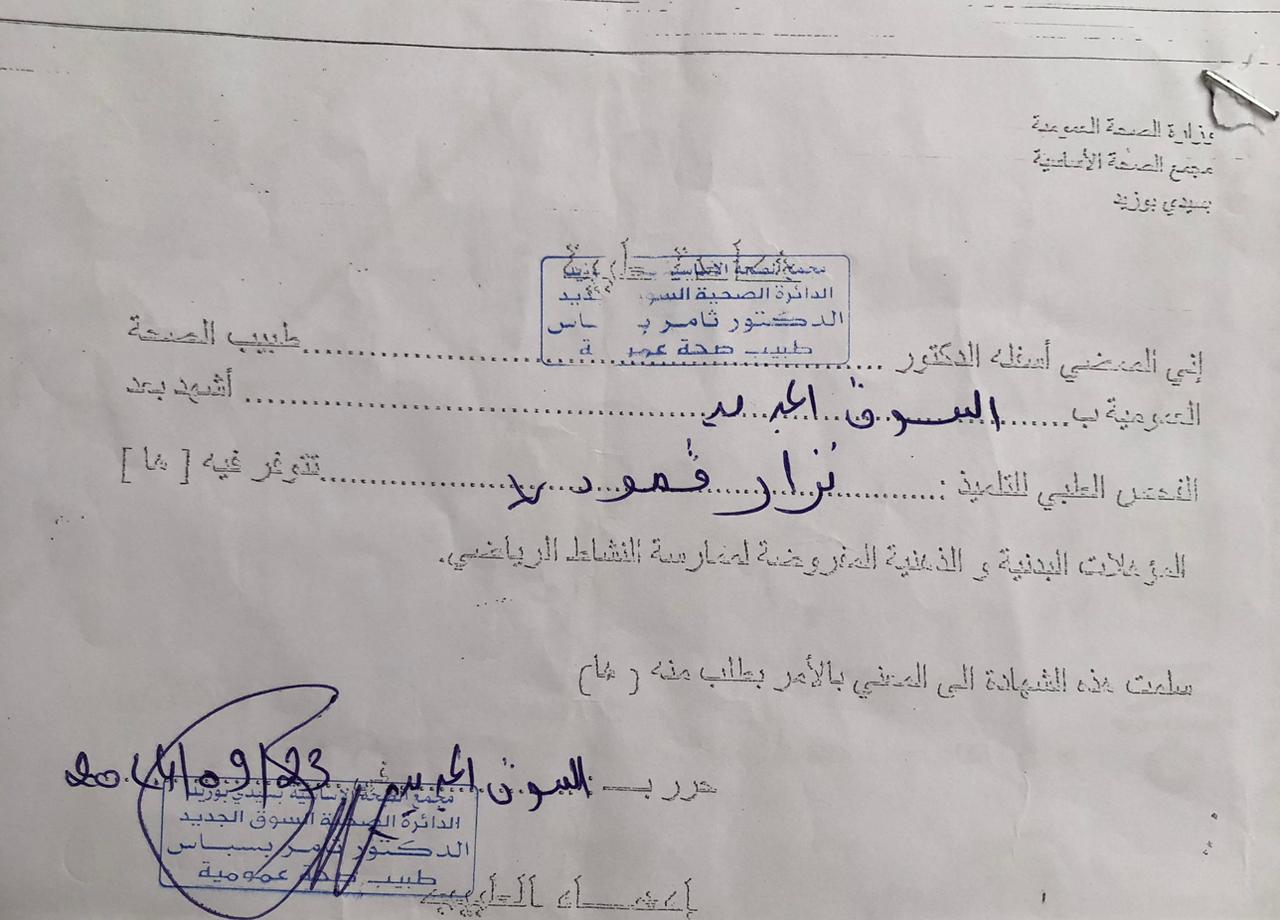 وزارة الصحة العمومية
مجمع الصحة الأساسية
بسيدي بوزيد
شهادة طبية
مجمع الصحة الأساسية
الدائرة الصحية السوق الجديد
الدكتور ثامر بسباس
طبيب صحة عمومية
إني الممضي أسفله الدكتور ........ طبيب الصحة
العمومية ب........ السوق الجديد ........ أشهد بعد
الفحص الطبي للتلميذ : ........ نزار قمودي ........ تتوفر فيه [ ها ]
المؤهلات البدنية و الذهنية المفروضة لممارسة النشاط الرياضي.
سلمت هذه الشهادة الى المعني بالأمر بطلب منه ( ها)
حرر بـ السوق الجديد في 23/09/
مجمع الصحة الأساسية بسيدي بوزيد
الدائرة الصحية السوق الجديد
الدكتور ثامر بسباس
طبيب صحة عمومية
إمضاء الطبيب